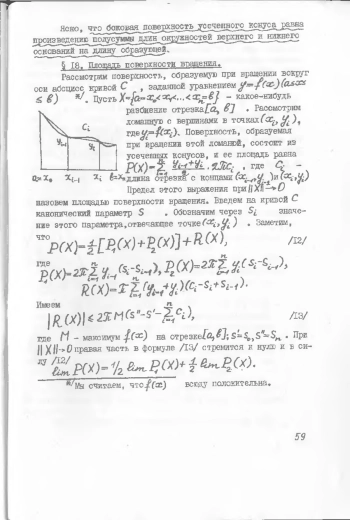 Ясно, что боковая поверхность усеченного конуса равна
произведению полусуммы длин окружностей верхнего и нижнего
оснований на длину образующей.
§ 18. Площадь поверхности вращения.
Рассмотрим поверхность, образуемую при вращении вокруг
оси абсцисс кривой C , заданной уравнением y=f(x) (a≤x≤
≤ b) ж/. Пусть X={a=x₀<x₁<...<xₙ=b} - какое-нибудь
разбиение отрезка [a, b] . Рассмотрим
ломаную с вершинами в точках (xᵢ, yᵢ),
где yᵢ=f(xᵢ). Поверхность, образуемая
при вращении этой ломаной, состоит из
усеченных конусов, и ее площадь равна
Cᵢ
yᵢ₋₁
yᵢ
P(X)=∑ⁿᵢ₌₁ (yᵢ₋₁+yᵢ)/2 · 2πCᵢ , где Cᵢ -
a=x₀ xᵢ₋₁ xᵢ b=xₙ
длина отрезка с концами (xᵢ₋₁, yᵢ₋₁) и (xᵢ, yᵢ)
Предел этого выражения при ||X||→0
назовем площадью поверхности вращения. Введем на кривой C
канонический параметр S . Обозначим через Sᵢ значе-
ние этого параметра, отвечающее точке (xᵢ, yᵢ) . Заметим,
что
P(X)=½[P₁(X)+P₂(X)]+R(X), /12/
где
P₁(X)=2π∑ⁿᵢ₌₁ yᵢ₋₁(Sᵢ-Sᵢ₋₁), P₂(X)=2π∑ⁿᵢ₌₁ yᵢ(Sᵢ-Sᵢ₋₁),
R(X)=π∑ⁿᵢ₌₁(yᵢ₋₁+yᵢ)(Cᵢ-Sᵢ+Sᵢ₋₁).
Имеем
|R(X)|≤2πM(S″-S′-∑ⁿᵢ₌₁Cᵢ), /13/
где M - максимум f(x) на отрезке [a, b]; S′=S₀, S″=Sₙ . При
||X||→0 правая часть в формуле /13/ стремится к нулю и в си-
лу /12/
lim P(X)=1/2 lim P₁(X)+½ lim P₂(X).
ж/ Мы считаем, что f(x) всюду положительна.
59